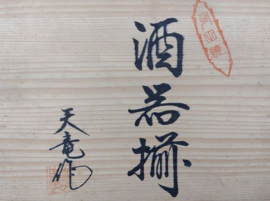 酒器揃
天竜作